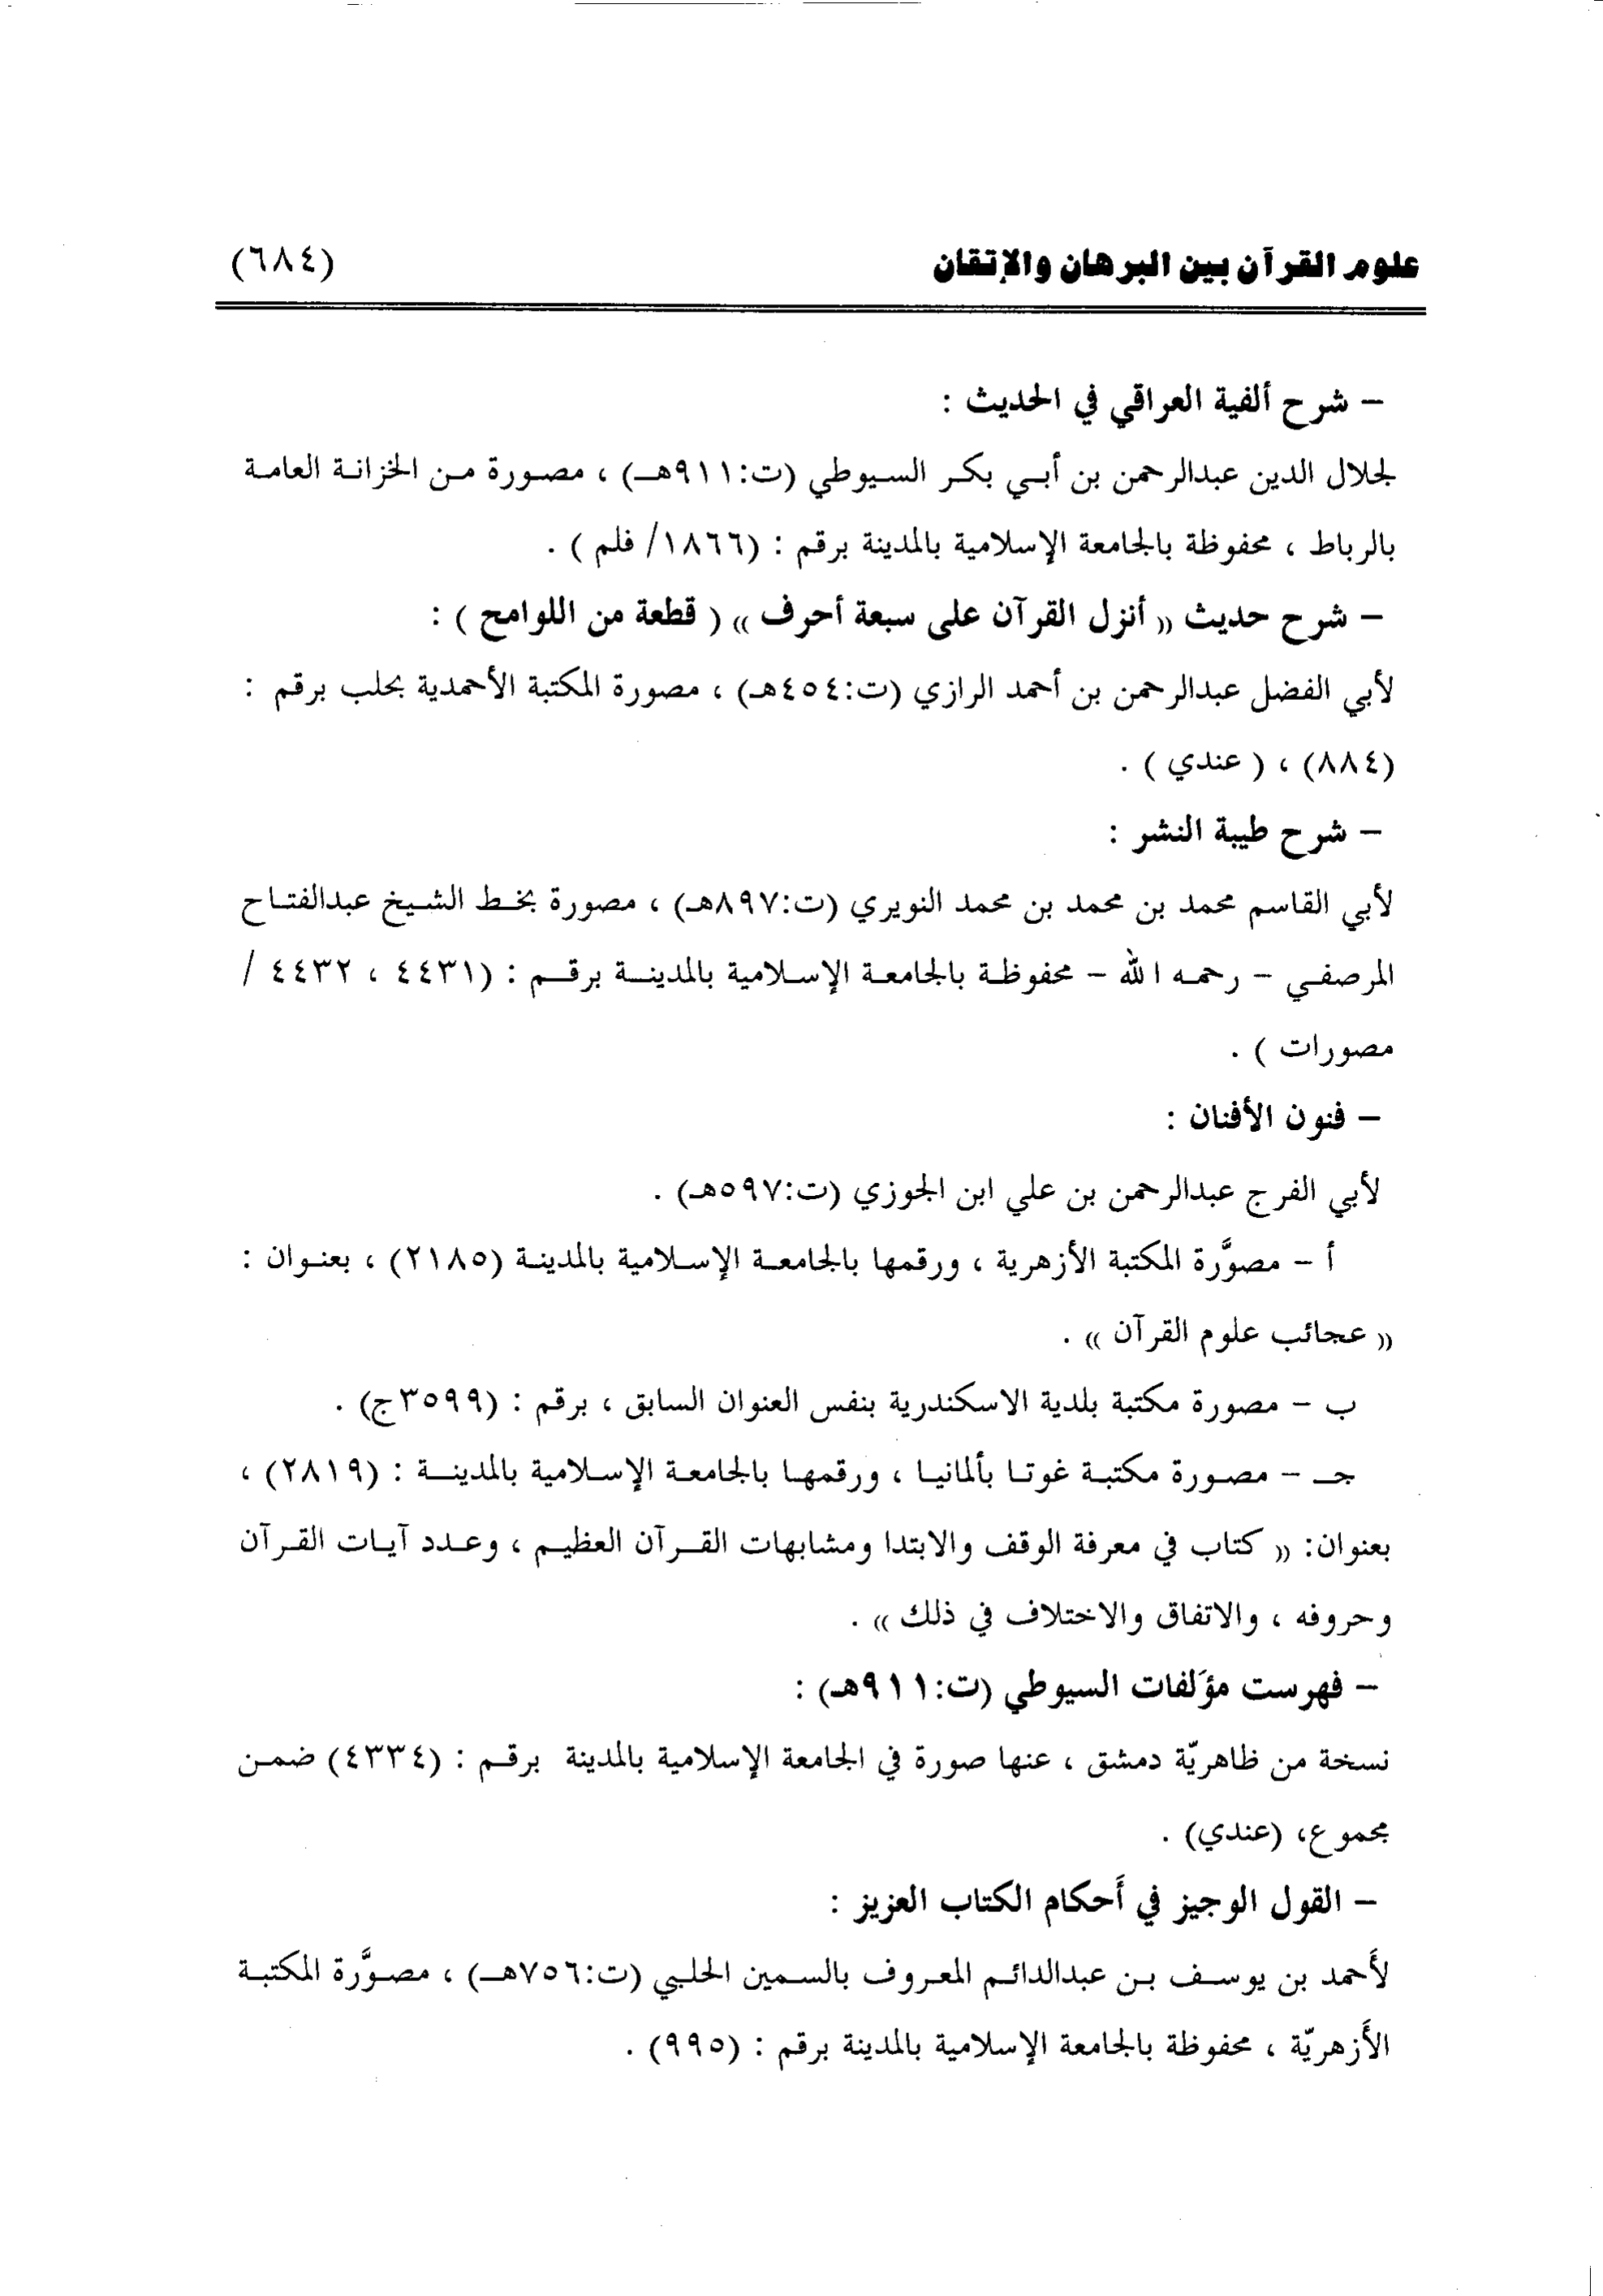 علوم القرآن بين البرهان والإتقان (٦٨٤)
– شرح ألفية العراقي في الحديث :
لجلال الدين عبدالرحمن بن أبي بكر السيوطي (ت:٩١١هـ) ، مصورة من الخزانة العامة
بالرباط ، محفوظة بالجامعة الإسلامية بالمدينة برقم : (١٨٦٦/ فلم ) .
– شرح حديث « أنزل القرآن على سبعة أحرف » ( قطعة من اللوامح ) :
لأبي الفضل عبدالرحمن بن أحمد الرازي (ت:٤٥٤هـ) ، مصورة المكتبة الأحمدية بحلب برقم :
(٨٨٤) ، ( عندي ) .
– شرح طيبة النشر :
لأبي القاسم محمد بن محمد بن محمد النويري (ت:٨٩٧هـ) ، مصورة بخط الشيخ عبدالفتاح
المرصفي – رحمه الله – محفوظة بالجامعة الإسلامية بالمدينة برقم : (٤٤٣١ ، ٤٤٣٢ /
مصورات ) .
– فنون الأفنان :
لأبي الفرج عبدالرحمن بن علي ابن الجوزي (ت:٥٩٧هـ) .
أ – مصوَّرة المكتبة الأزهرية ، ورقمها بالجامعة الإسلامية بالمدينة (٢١٨٥) ، بعنوان :
« عجائب علوم القرآن » .
ب – مصورة مكتبة بلدية الاسكندرية بنفس العنوان السابق ، برقم : (٣٥٩٩ج) .
جـ – مصورة مكتبة غوتا بألمانيا ، ورقمها بالجامعة الإسلامية بالمدينة : (٢٨١٩) ،
بعنوان: « كتاب في معرفة الوقف والابتدا ومشابهات القرآن العظيم ، وعدد آيات القرآن
وحروفه ، والاتفاق والاختلاف في ذلك » .
– فهرست مؤلفات السيوطي (ت:٩١١هـ) :
نسخة من ظاهريّة دمشق ، عنها صورة في الجامعة الإسلامية بالمدينة برقم : (٤٣٣٤) ضمن
مجموع، (عندي) .
– القول الوجيز في أَحكام الكتاب العزيز :
لأَحمد بن يوسف بن عبدالدائم المعروف بالسمين الحلبي (ت:٧٥٦هـ) ، مصوَّرة المكتبة
الأَزهريّة ، محفوظة بالجامعة الإسلامية بالمدينة برقم : (٩٩٥) .